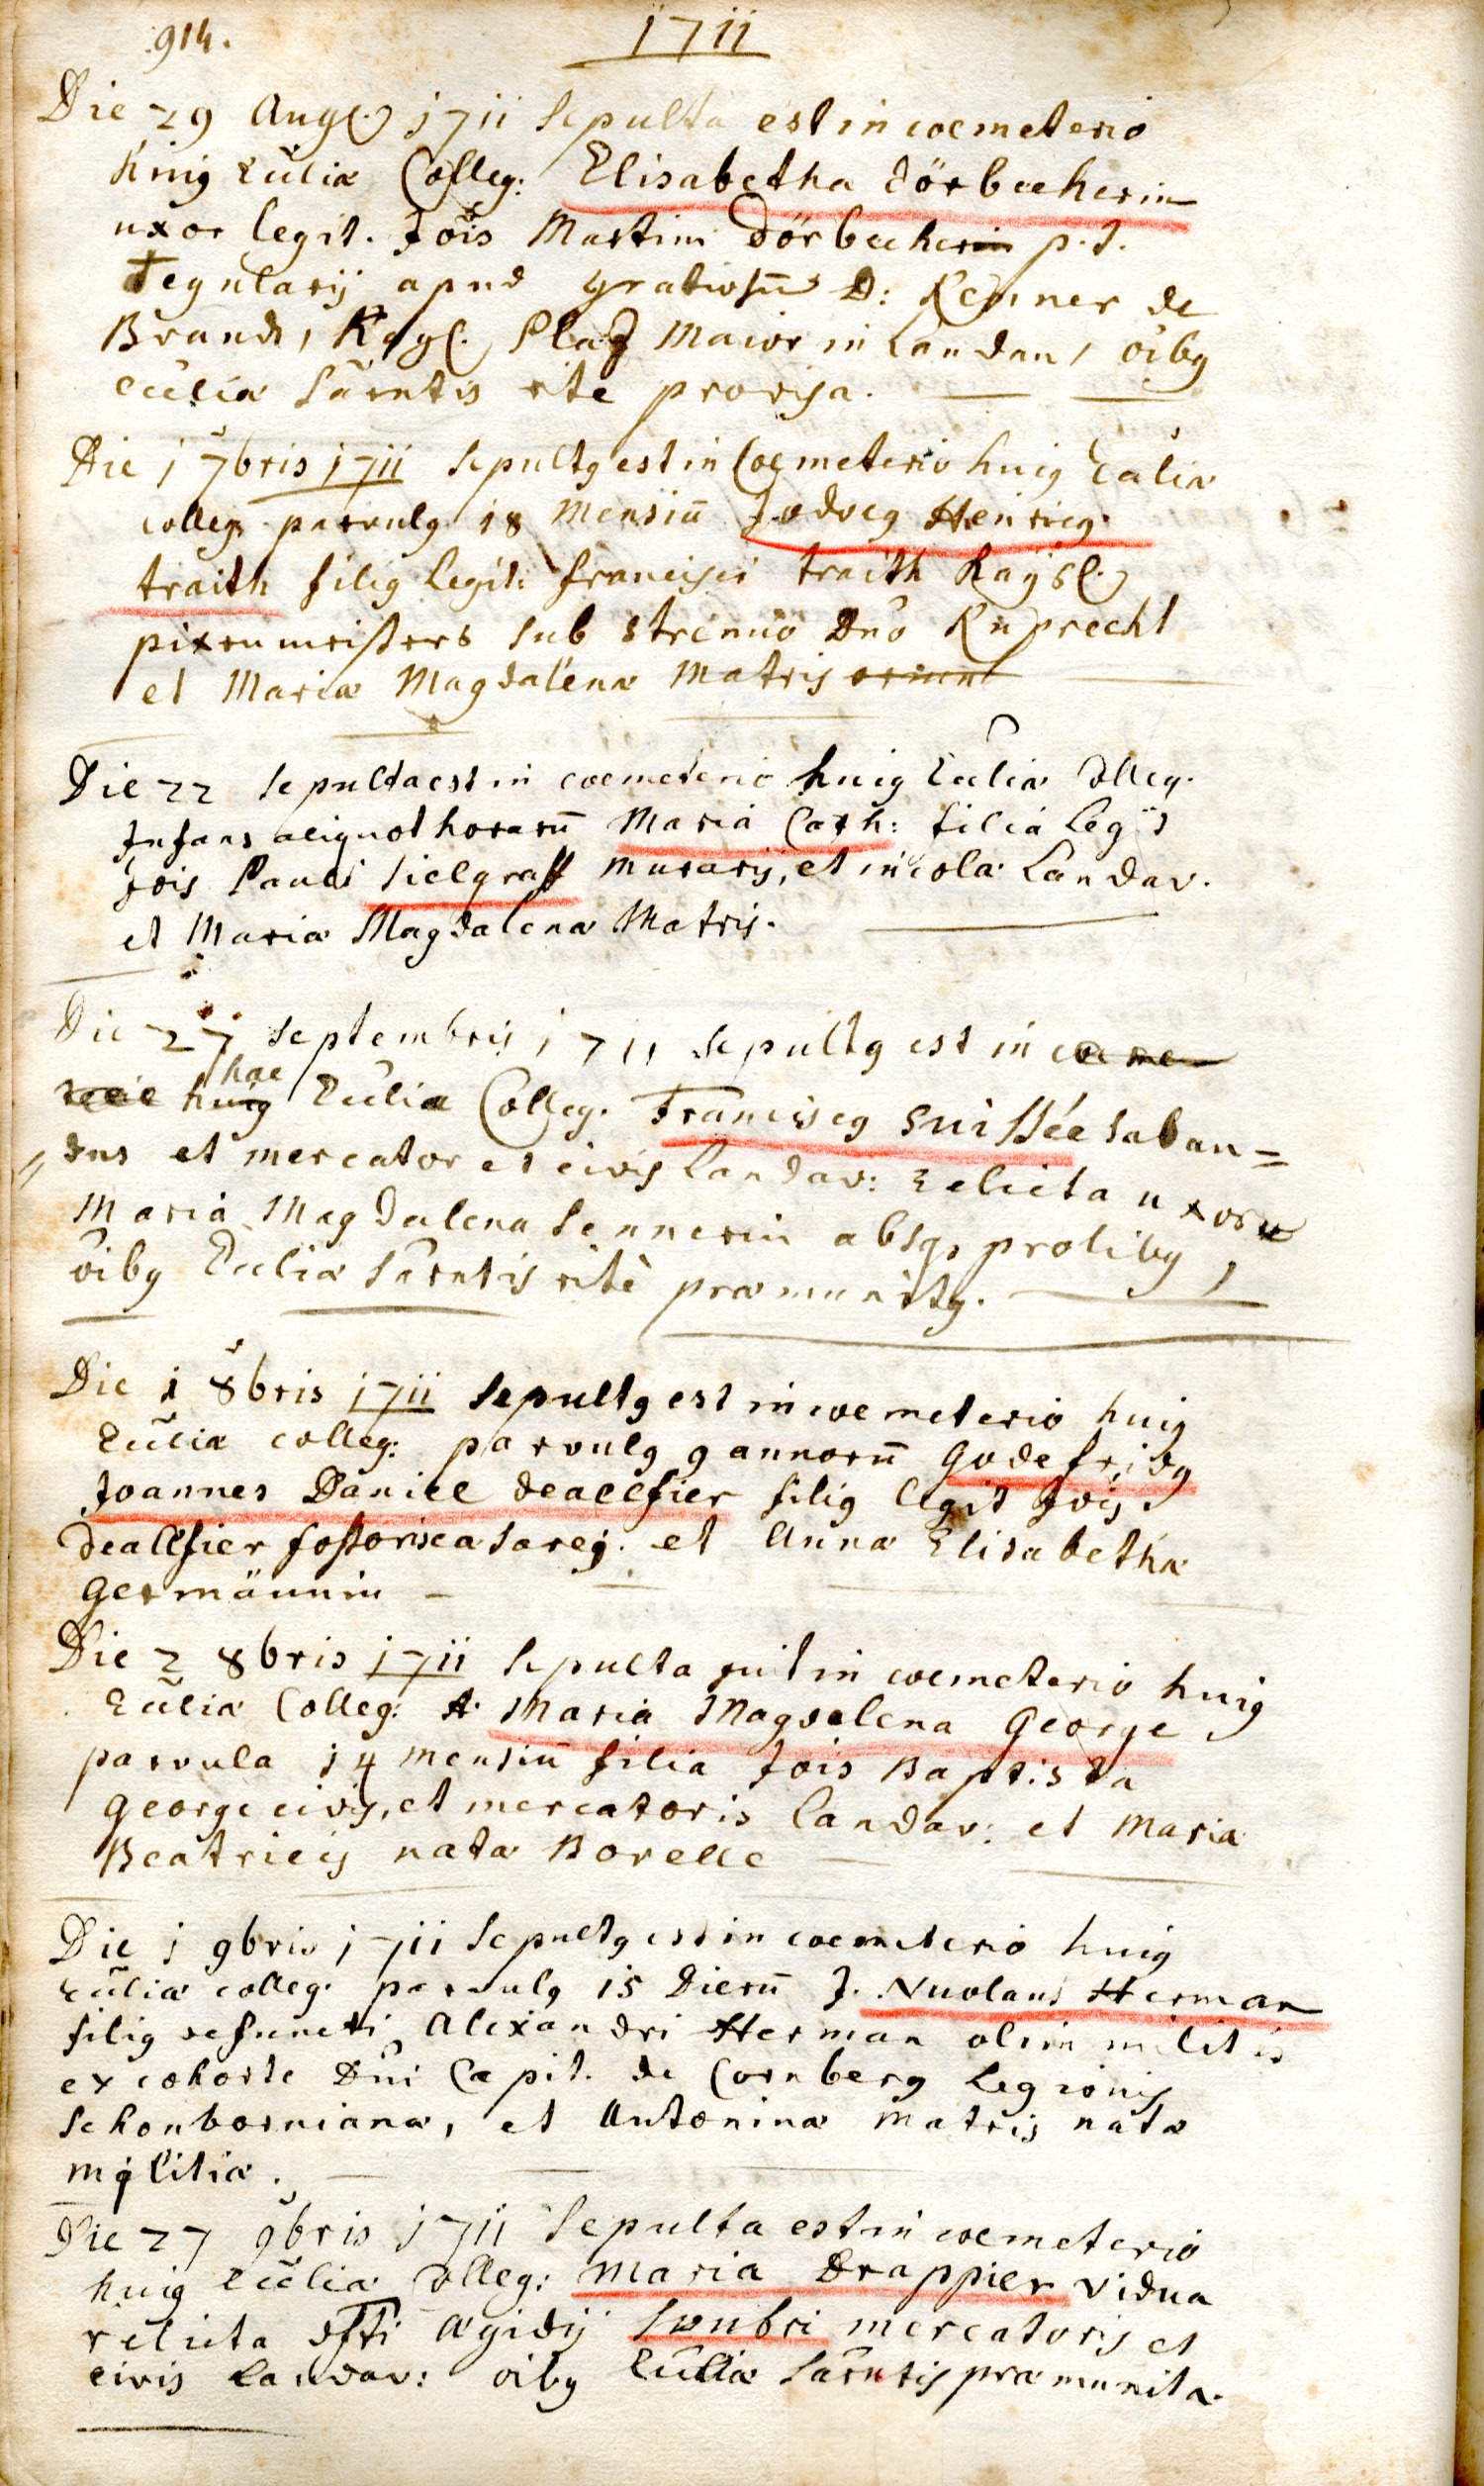 914.
1711
Die 29 Augl. 1711 Sepulta est in coemeterio
huig Eccliæ Colleg: Elisabetha Dörbecherin
uxor legit. Jois Martini Dörbecherin p.t.
Tegularij apud gratiosū D: Kenner de
Brandt, Kayl. Plaz Maior in Landau, oibg
eccliæ Sacrntis rite provisa.
Die 1 7bris 1711 Sepultg est in Coemeterio huig Eccliæ
colleg. parvulg 18 Mensiū Jodocg Henricg
traith filig legit: francisci traith Kaysl.
pixenmeisters sub strenuo Dno Ruprecht
et Mariæ Magdalenæ Matris
Die 22 Sepulta est in coemeterio huig Eccliæ Colleg.
Infans aliquot horarū Maria Cath: filia Legit
Jois Pauli Sielgraff Murarij, et incolæ Landav.
et Mariæ Magdalenæ Matris.
Die 27 Septembris 1711 Sepultg est in coeme
huig hac Eccliæ Colleg. Franciscg Suissée Sabau=
"dus et mercator et civis Landav: relicta uxore
Maria Magdalena Sennerin absq; prolibg,
oibg Eccliæ Sacrntis ritè præmunitg.
Die 1 8bris 1711 Sepultg est in coemeterio huig
Eccliæ colleg: parvulg 9 annorū Godefridg
Joannes Daniel deallfier filig legit Jois
deallfier fossoris et Annæ Elisabethæ
Germännin
Die 2 8bris 1711 Sepulta fuit in coemeterio huig
Eccliæ Colleg: A. Maria Magdalena George
parvula 14 mensiū filia Jois Baptistæ
George civis, et mercatoris Landav: et Mariæ
Beatricis natæ Borelle
Die 1 9bris 1711 Sepultg est in coemeterio huig
Eccliæ colleg. parvulg 15 Dierū J. Nicolaus Herman
filig defuncti Alexandri Herman olim militis
ex cohorte Dni Capit. de Cornberg Legionis
Schonbornianæ, et Antoninæ Matris natæ
militiæ.
Die 27 9bris 1711 Sepulta est in coemeterio
huig Eccliæ Colleg: Maria Drappier vidua
relicta dfti Ægidij mercatoris et
civis Landav: oibg Eccliæ Sacrntis præmunita.